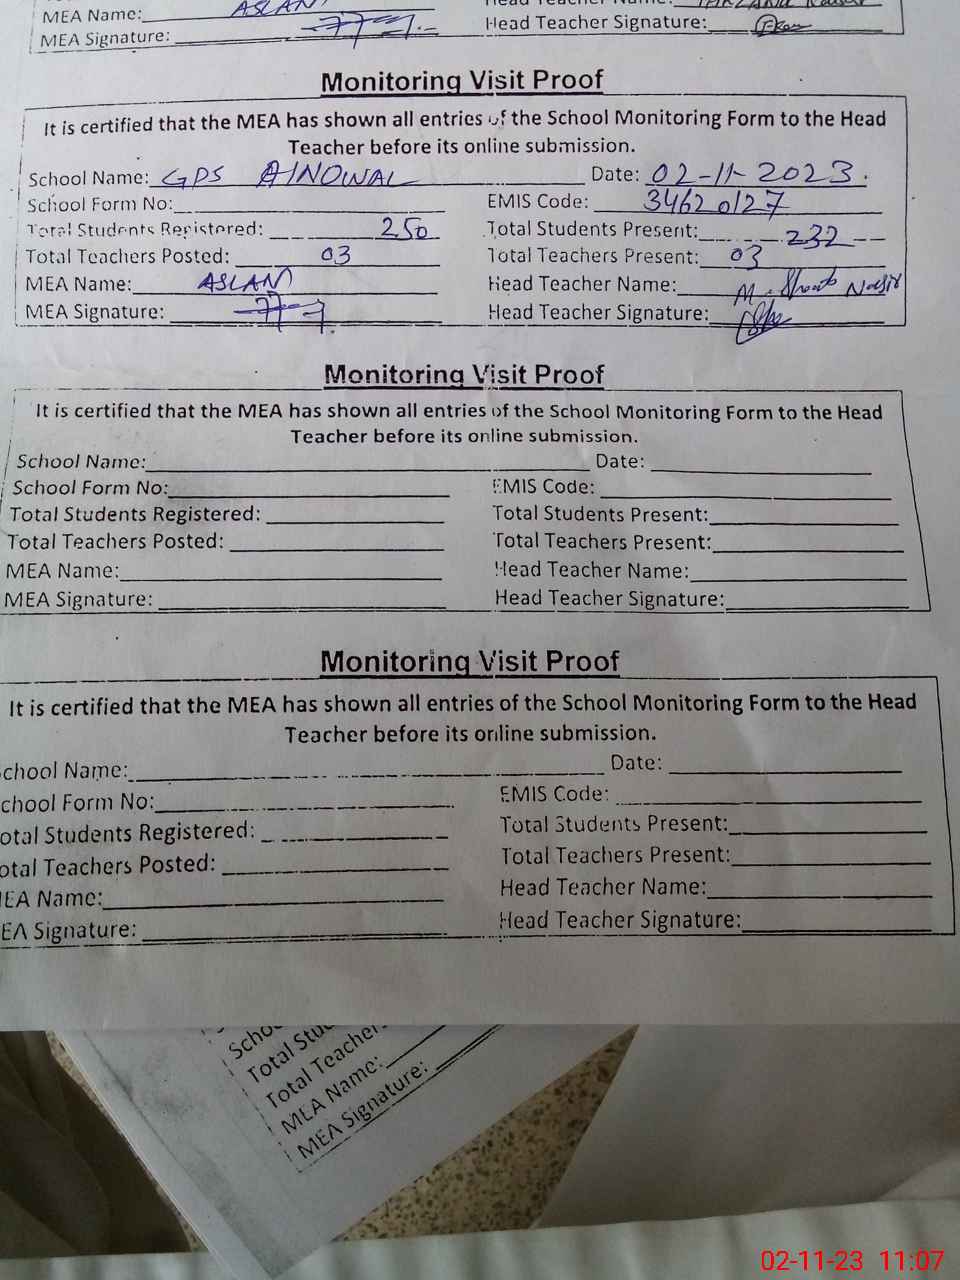 MEA Name: ASLAN Head Teacher Name:
MEA Signature: Head Teacher Signature:
Monitoring Visit Proof
It is certified that the MEA has shown all entries of the School Monitoring Form to the Head
Teacher before its online submission.
School Name: GPS AINOWAL Date: 02-11-2023.
School Form No: EMIS Code: 34620127
Total Students Registered: 250 Total Students Present: 232
Total Teachers Posted: 03 Total Teachers Present: 03
MEA Name: ASLAN Head Teacher Name: M.
MEA Signature: Head Teacher Signature:
Monitoring Visit Proof
It is certified that the MEA has shown all entries of the School Monitoring Form to the Head
Teacher before its online submission.
School Name: Date:
School Form No: EMIS Code:
Total Students Registered: Total Students Present:
Total Teachers Posted: Total Teachers Present:
MEA Name: Head Teacher Name:
MEA Signature: Head Teacher Signature:
Monitoring Visit Proof
It is certified that the MEA has shown all entries of the School Monitoring Form to the Head
Teacher before its online submission.
chool Name: Date:
chool Form No: EMIS Code:
otal Students Registered: Total Students Present:
otal Teachers Posted: Total Teachers Present:
EA Name: Head Teacher Name:
EA Signature: Head Teacher Signature:
Schoo
Total Stu
Total Teacher
MEA Name:
MEA Signature:
02-11-23 11:07